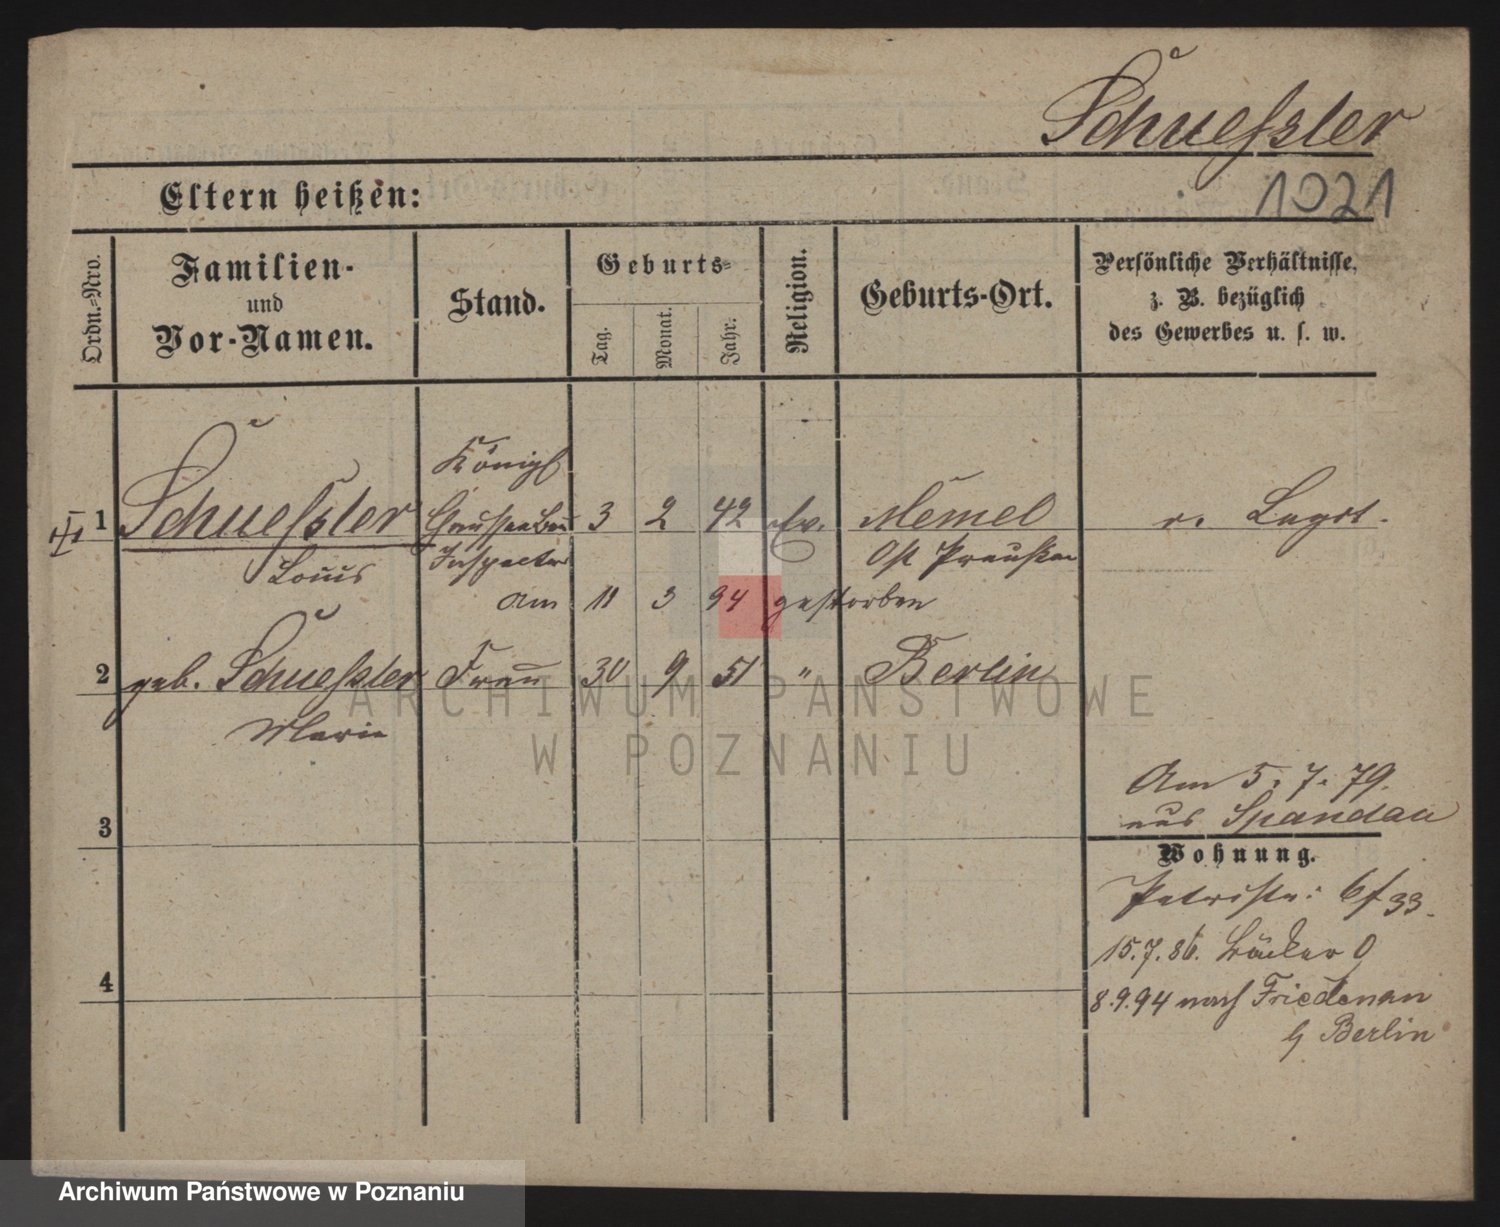 Schuessler
1021
Eltern heißen:
Ordn.-Nro.
Familien-
und
Vor-Namen.
Stand.
Geburts-
Tag.
Monat.
Jahr.
Religion.
Geburts-Ort.
Persönliche Verhältnisse,
z. B. bezüglich
des Gewerbes u. s. w.
Königl
1 Schuessler 3 2 42 Ev. Memel
Louis Inspector Ost Preußen
am 11 3 94 gestorben
2 geb. Schuessler Frau 30 9 51 " Berlin
Marie
ARCHIWUM PAŃSTWOWE
W POZNANIU
Am 5. 7. 79.
aus Spandau
3
Wohnung.
Petristr: 6 f 33.
15.7.86. Bäcker 9
4
8.9.94 nach Friedenau
b Berlin
Archiwum Państwowe w Poznaniu